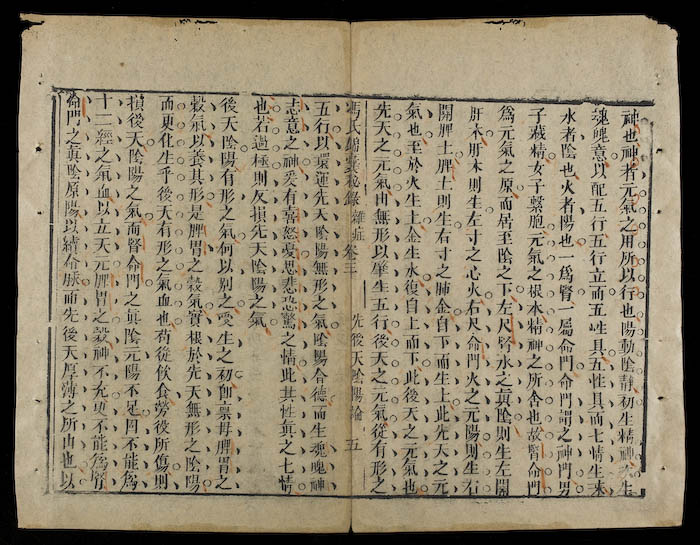 神也神者元氣之用所以行也陽動陰靜初生精神次生
魂魄意以配五行五行立而五性具五性具而七情生來
水者陰也火者陽也一爲腎一屬命門命門謂之神門男
子藏精女子繫胞元氣之根水精神之所舍也故腎命門
爲元氣之原而居至陰之下左尺腎水之眞陰則生左關
肝木肝木則生左寸之心火右尺命門火之元陽則生右
關脾土脾土則生右寸之肺金自下而生上此先天之元
氣也至於火生土金生水復自上而下此後天之元氣也
先天之元氣由無形以肇生五行後天之元氣從有形之
馮氏錦囊秘錄 雜症 卷三 先後天陰陽論 五
五行以環運先天陰陽無形之氣陰陽合德而生魂魄神
志意之神爰有喜怒憂思悲恐驚之情此其性眞之七情
也若過極則反損先天陰陽之氣
後天陰陽有形之氣何以別之受生之初卽禀母脾胃之
穀氣以養其形是脾胃之穀氣實根於先天無形之陰陽
而更化生乎後天有形之氣血也苟從飮食勞役所傷則
損後天陰陽之氣而腎命門之眞陰元陽不足固不能爲
十二經之氣血以立天元脾胃之穀神不充更不能爲腎
命門之眞陰原陽以續命脉而先後天厚薄之所由也以